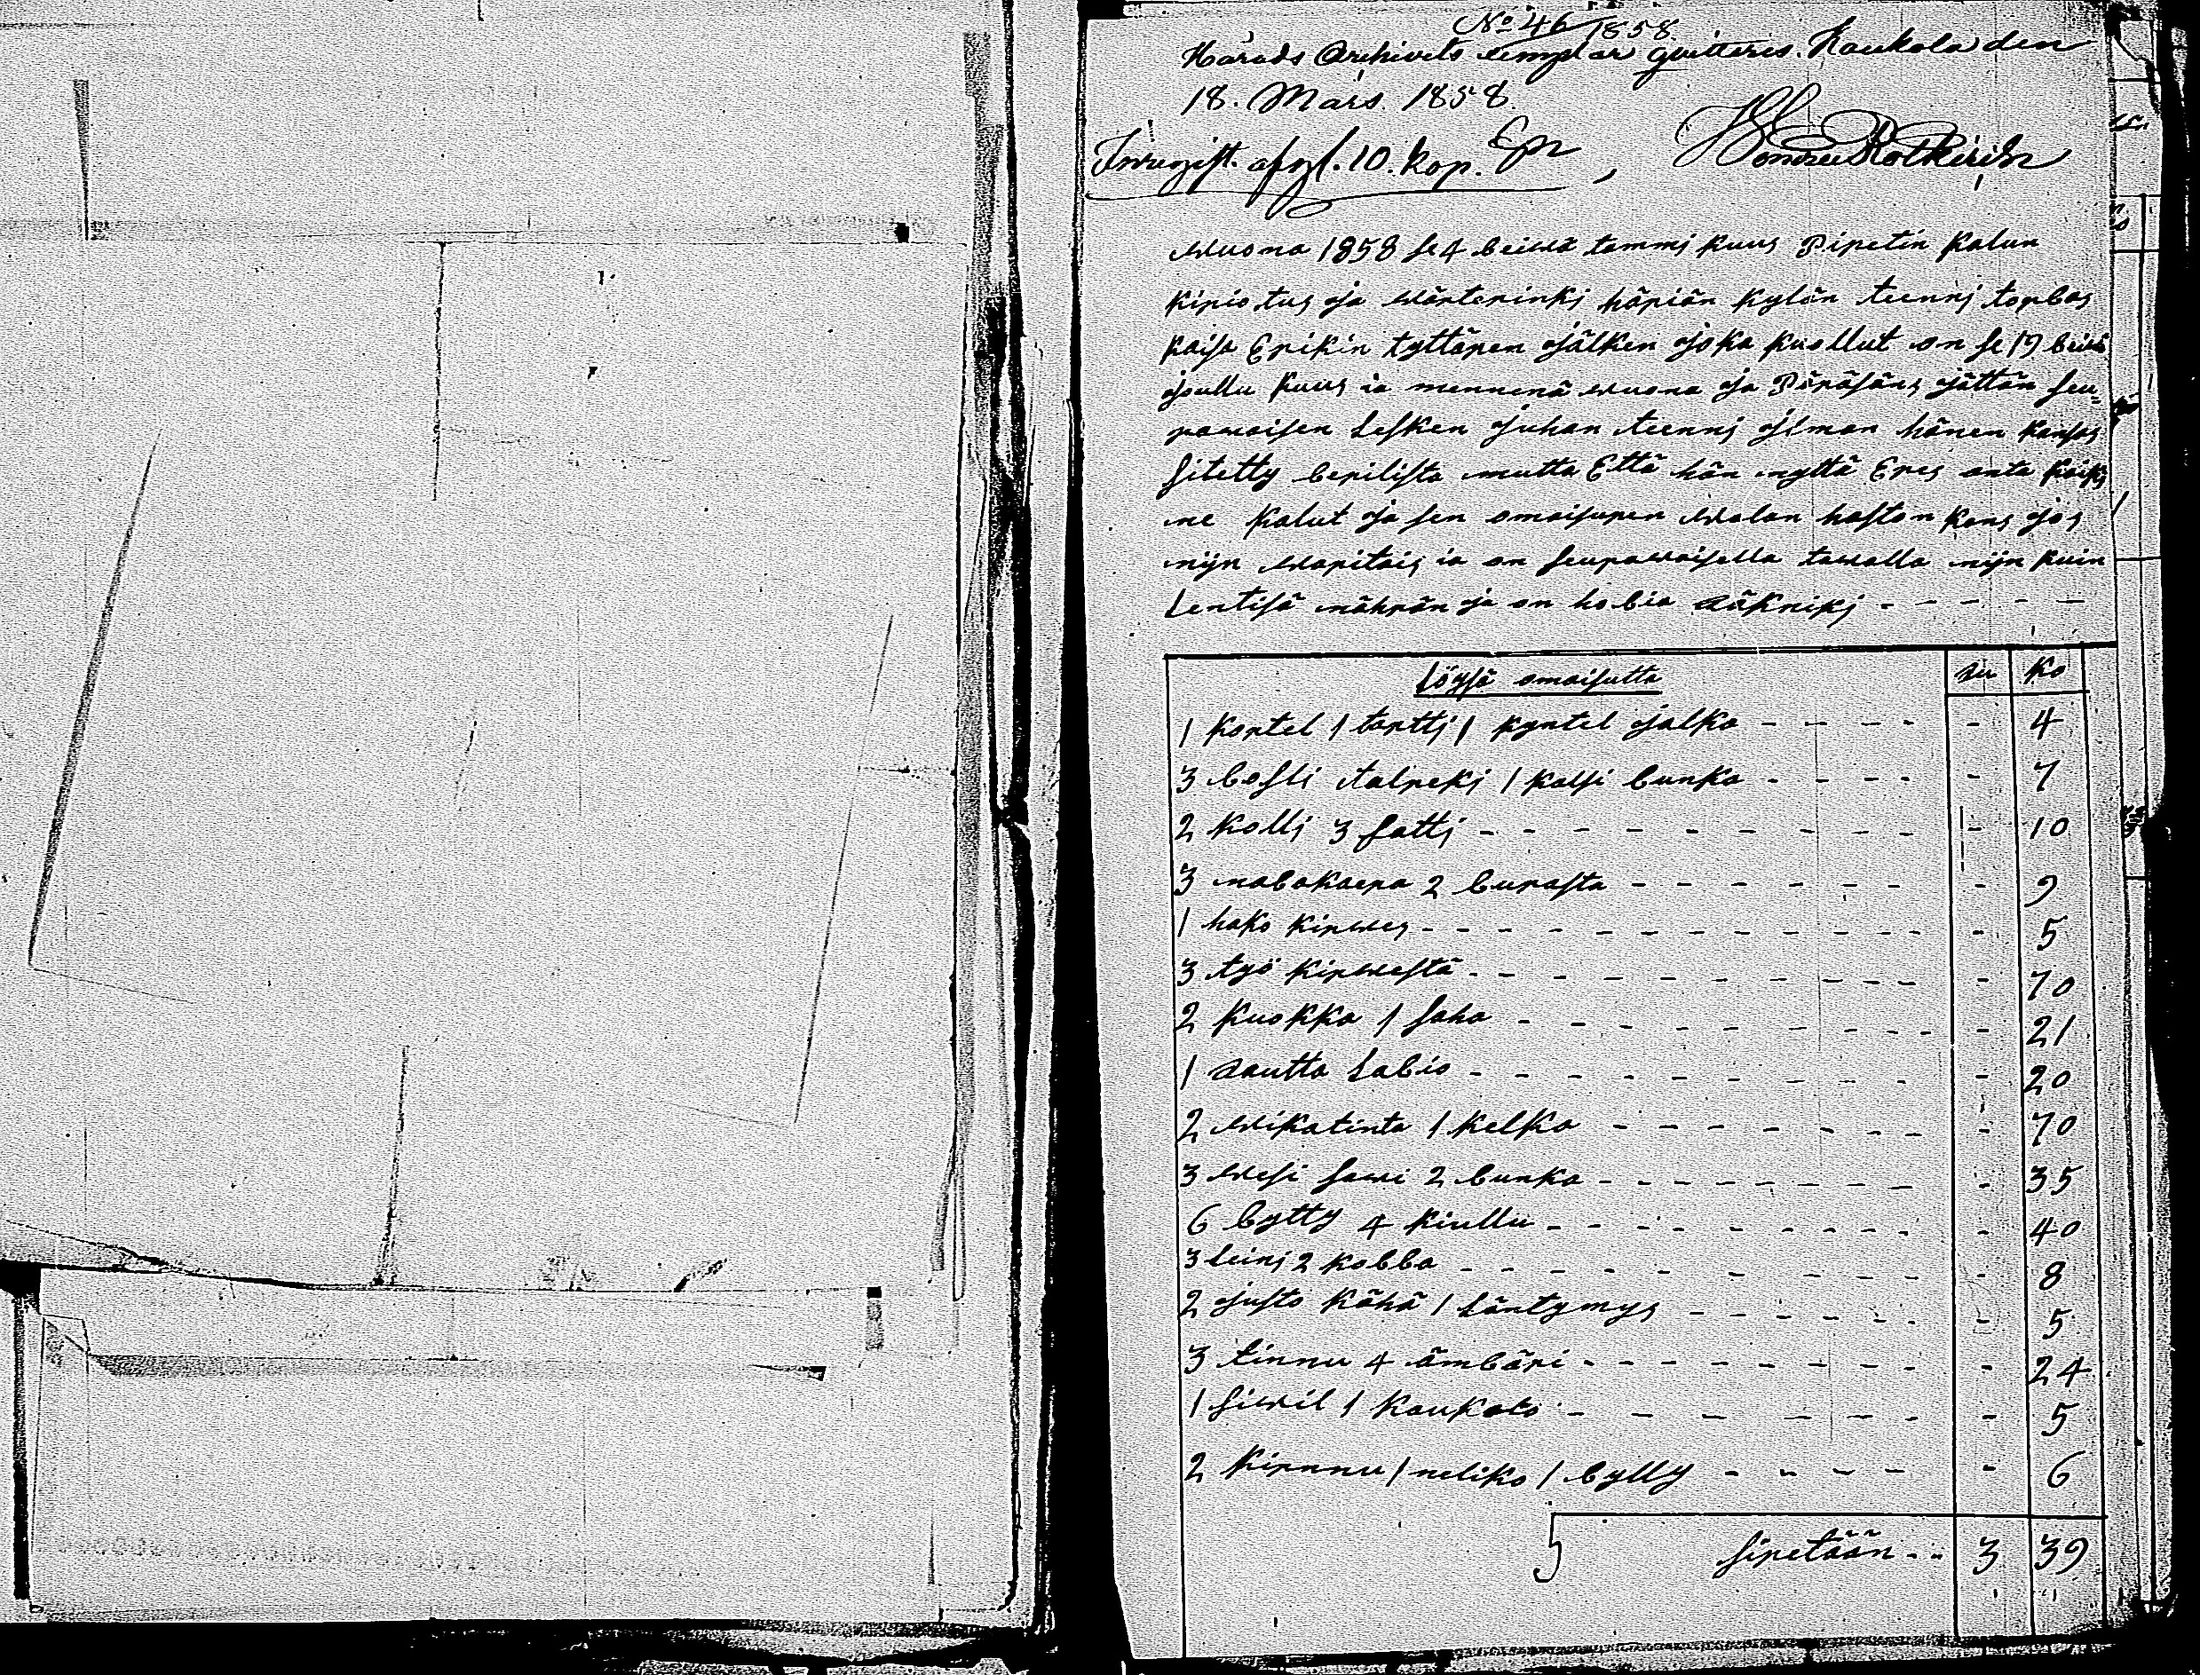 No 46 1858.
Härads Archivets exemplar quitteres. Kaukola den
18. Mars. 1858
Inregist. afgl. 10. kop. Epr
wuona 1858 se 4 beiwä tammj kuus Piretin kalun
kirio tus ja wärterinkj häriän kylän teennj torbas
kaisa Erikin tyttären jälken joka kuollut on se 19 beiwä
joullu kuus ia mennenä wuona ja Päräsäns jättän seu=
rawaisen Lesken Juhan teennj jlman hänen kansas
sitetty berilista mutta Että hän nyttä Eres anta kaikj
ne kalut ja sen omaisuren walan haston kans jos
nijn waritais ia on seurawaisella tawalla nijn kuin
Lentisä nährän ja on hobia räknikj - - - - -
Löysä omaisutta ru ko
1 kortel 1 torttj 1 kyntel jalka - - - - - 4
3 bosli talrekj 1 kalsi bunka - - - - - 7
2 kollj 3 fattj - - - - - - - - - - 10
3 nabakaera 2 burasta - - - - - - - 9
1 hako kirwes - - - - - - - - - - - 5
3 työ kirwestä - - - - - - - - - - 70
2 kuokka 1 saha - - - - - - - - - 21
1 rautta Labio - - - - - - - - - - 20
2 wikatinta 1 kelka - - - - - - - - 70
3 wesi sawi 2 bunka - - - - - - - - 35
6 bytty 4 kiullu - - - - - - - - - 40
3 leinj 2 kobba - - - - - - - - - 8
2 justo kähä 1 Läntymys - - - - - - 5
3 tinnu 4 ämbäri - - - - - - - - 24
1 siwil 1 kaukalo - - - - - - - - 5
2 kirnnu 1 neliko 1 bylly - - - - - 6
siretään - - 3 39